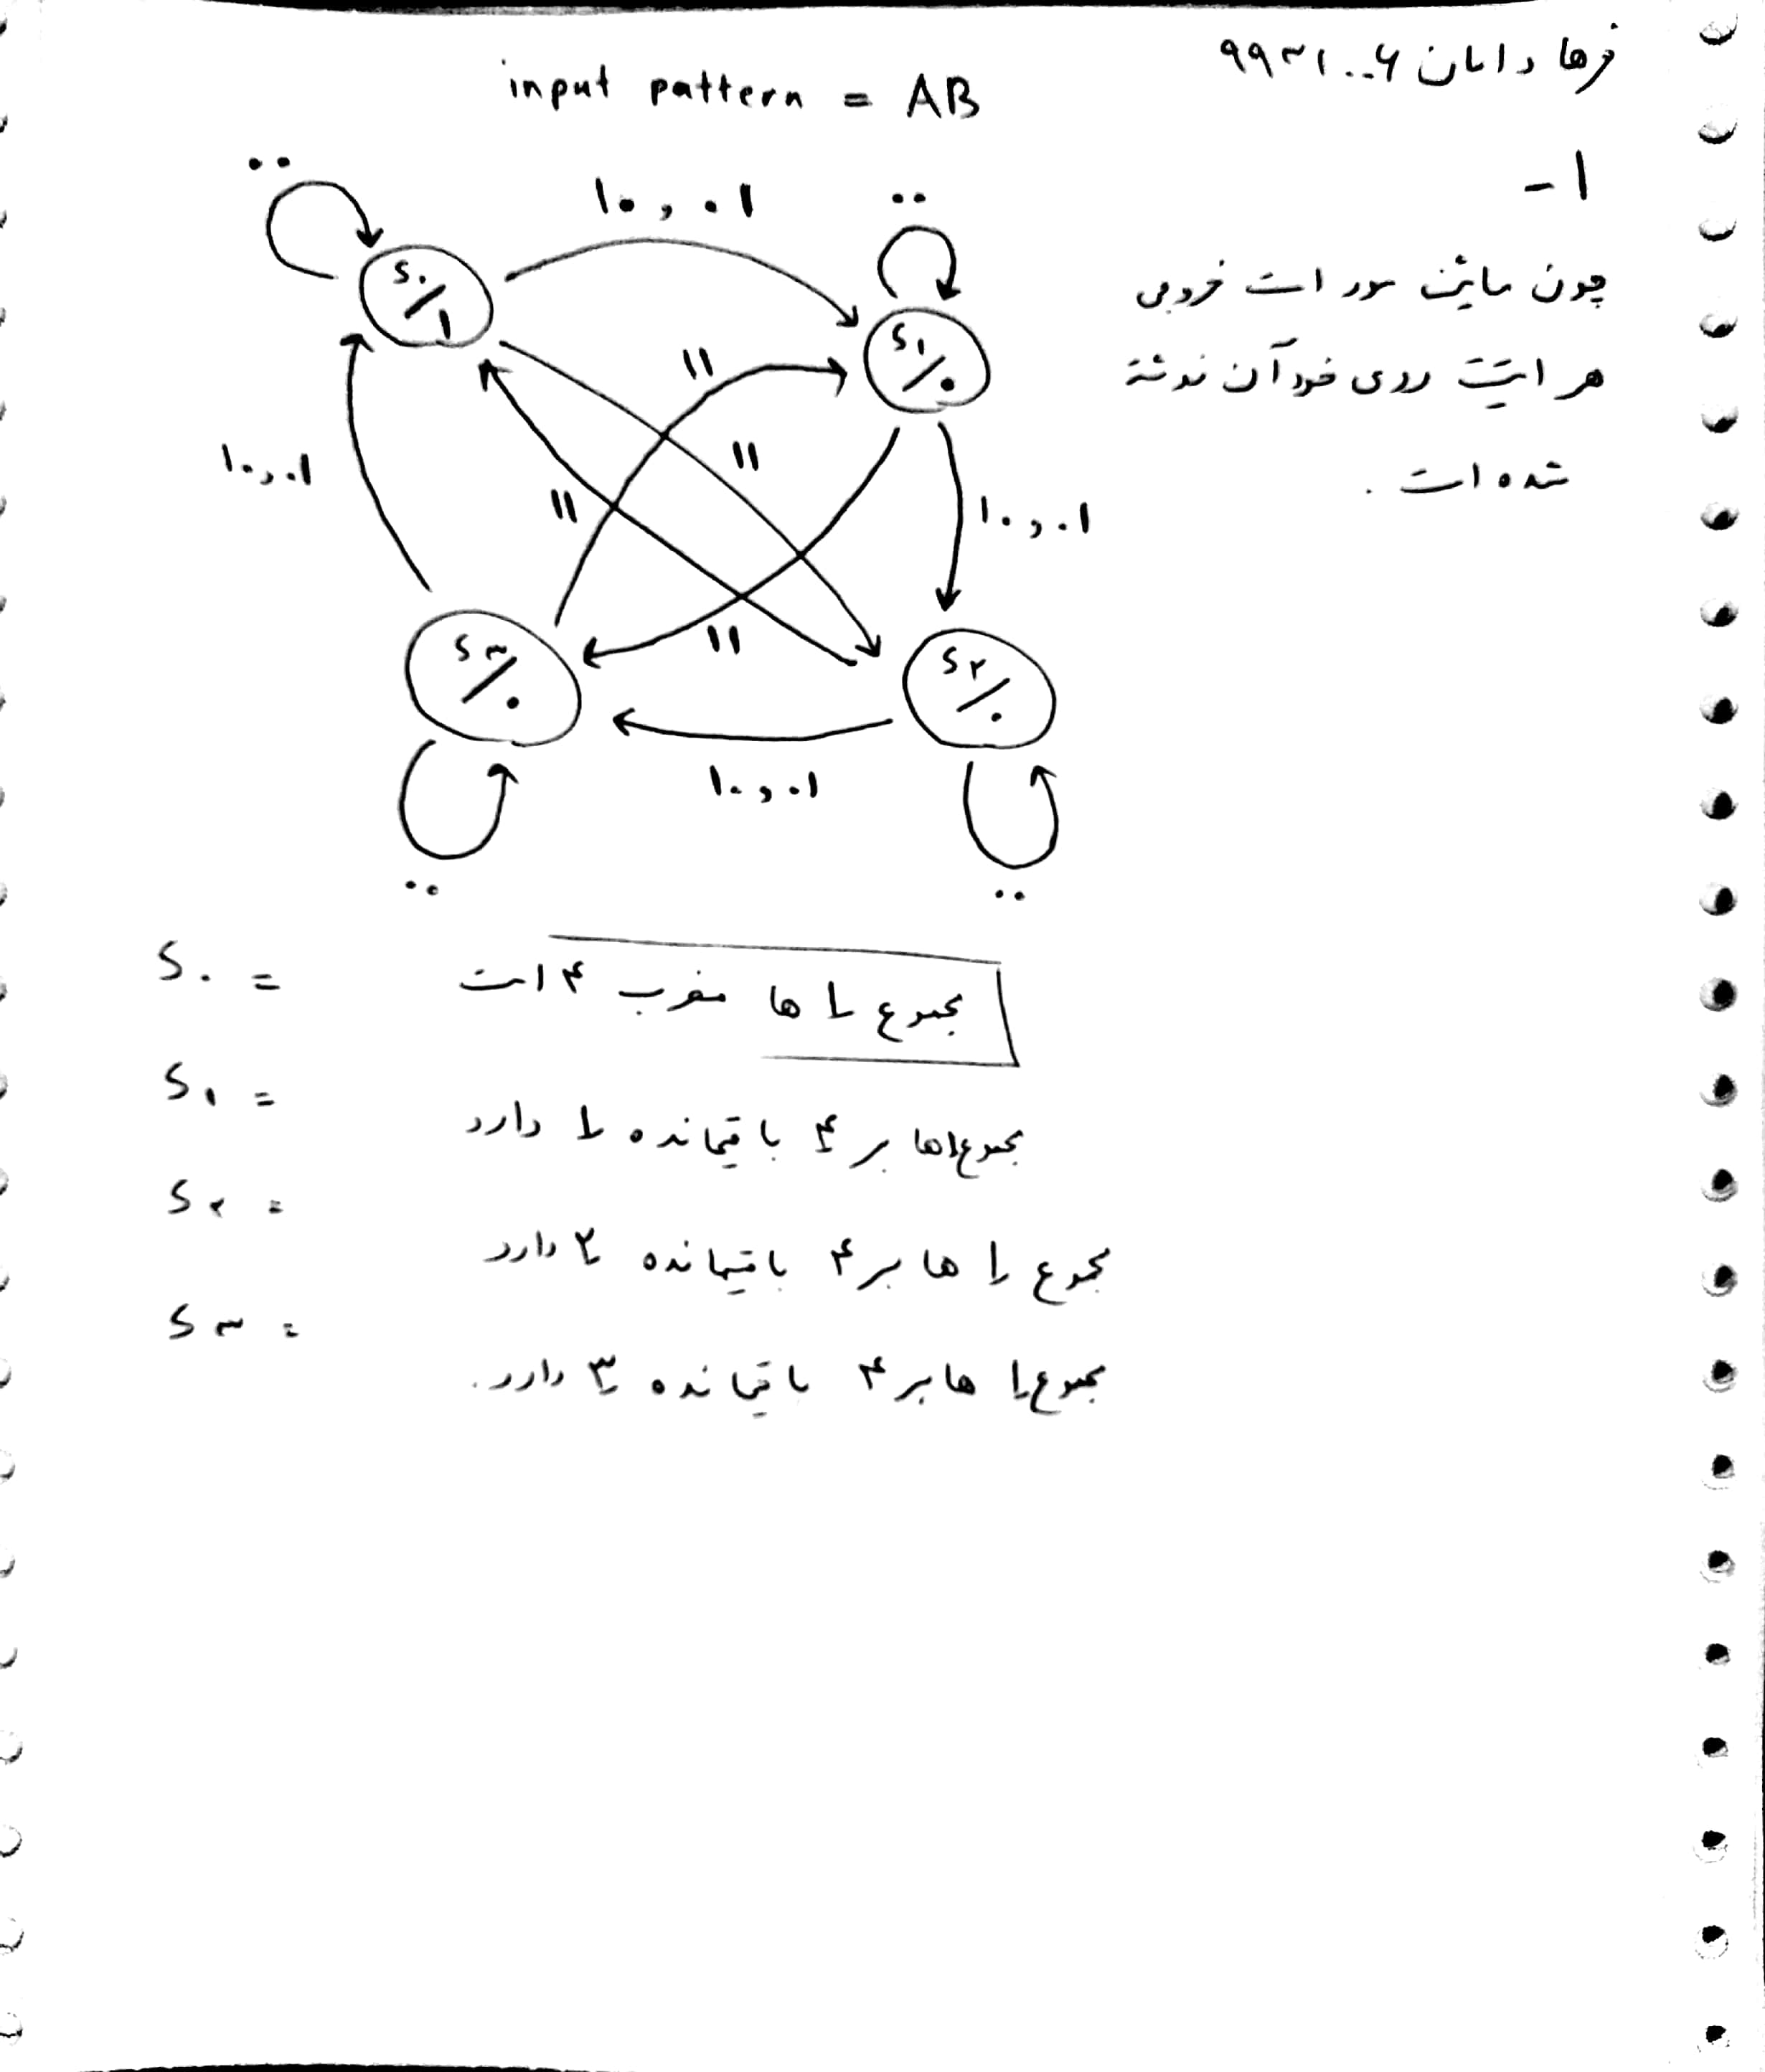 فرهاد امان ۹۹۳۱۰۰۶
input pattern = AB
۱-
چون ماشین مور است خروجی
هر استیت روی خود آن نوشته
شده است.
۰۰
۱۰,۰۱
۰۰
S۰/۱
S۱/۰
۱۱
۱۱
۱۰,۰۱
۱۱
۱۰,۰۱
۱۱
S۳/۰
S۲/۰
۱۰,۰۱
۰۰
۰۰
S۰ = مجموع ۱ ها مضرب ۴ است
S۱ = مجموع ۱ها بر ۴ باقیمانده ۱ دارد
S۲ = مجموع ۱ ها بر ۴ باقیمانده ۲ دارد
S۳ = مجموع ۱ ها بر ۴ باقیمانده ۳ دارد.